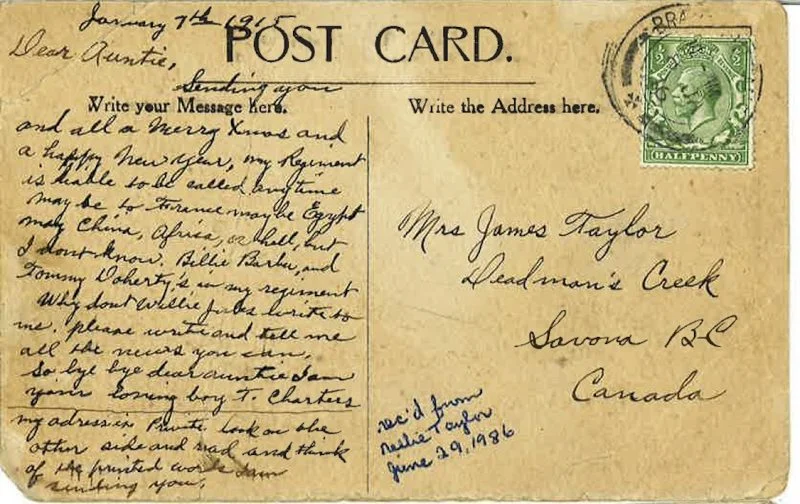 January 7th 1915
POST CARD.
Dear Auntie,
Sending you
Write your Message here.
and all a Merry Xmas and
a happy New Year, my Regiment
is liable to be called anytime
may be to France maybe Egypt
may China, Africa, or hell, but
I dont know. Billie Barber, and
Tommy Doherty's in my regiment
Why dont Willie Jules write to
me. please write and tell me
all the news you can,
So bye bye dear auntie I am
your loving boy T. Charters
my adress is Private look on the
other side and read and think
of the printed words I am
sending you.
Write the Address here.
BRA
1/2
1/2
HALFPENNY
Mrs James Taylor
Deadman's Creek
Savona BC
Canada
rec'd from
Nellie Taylor
June 29, 1986